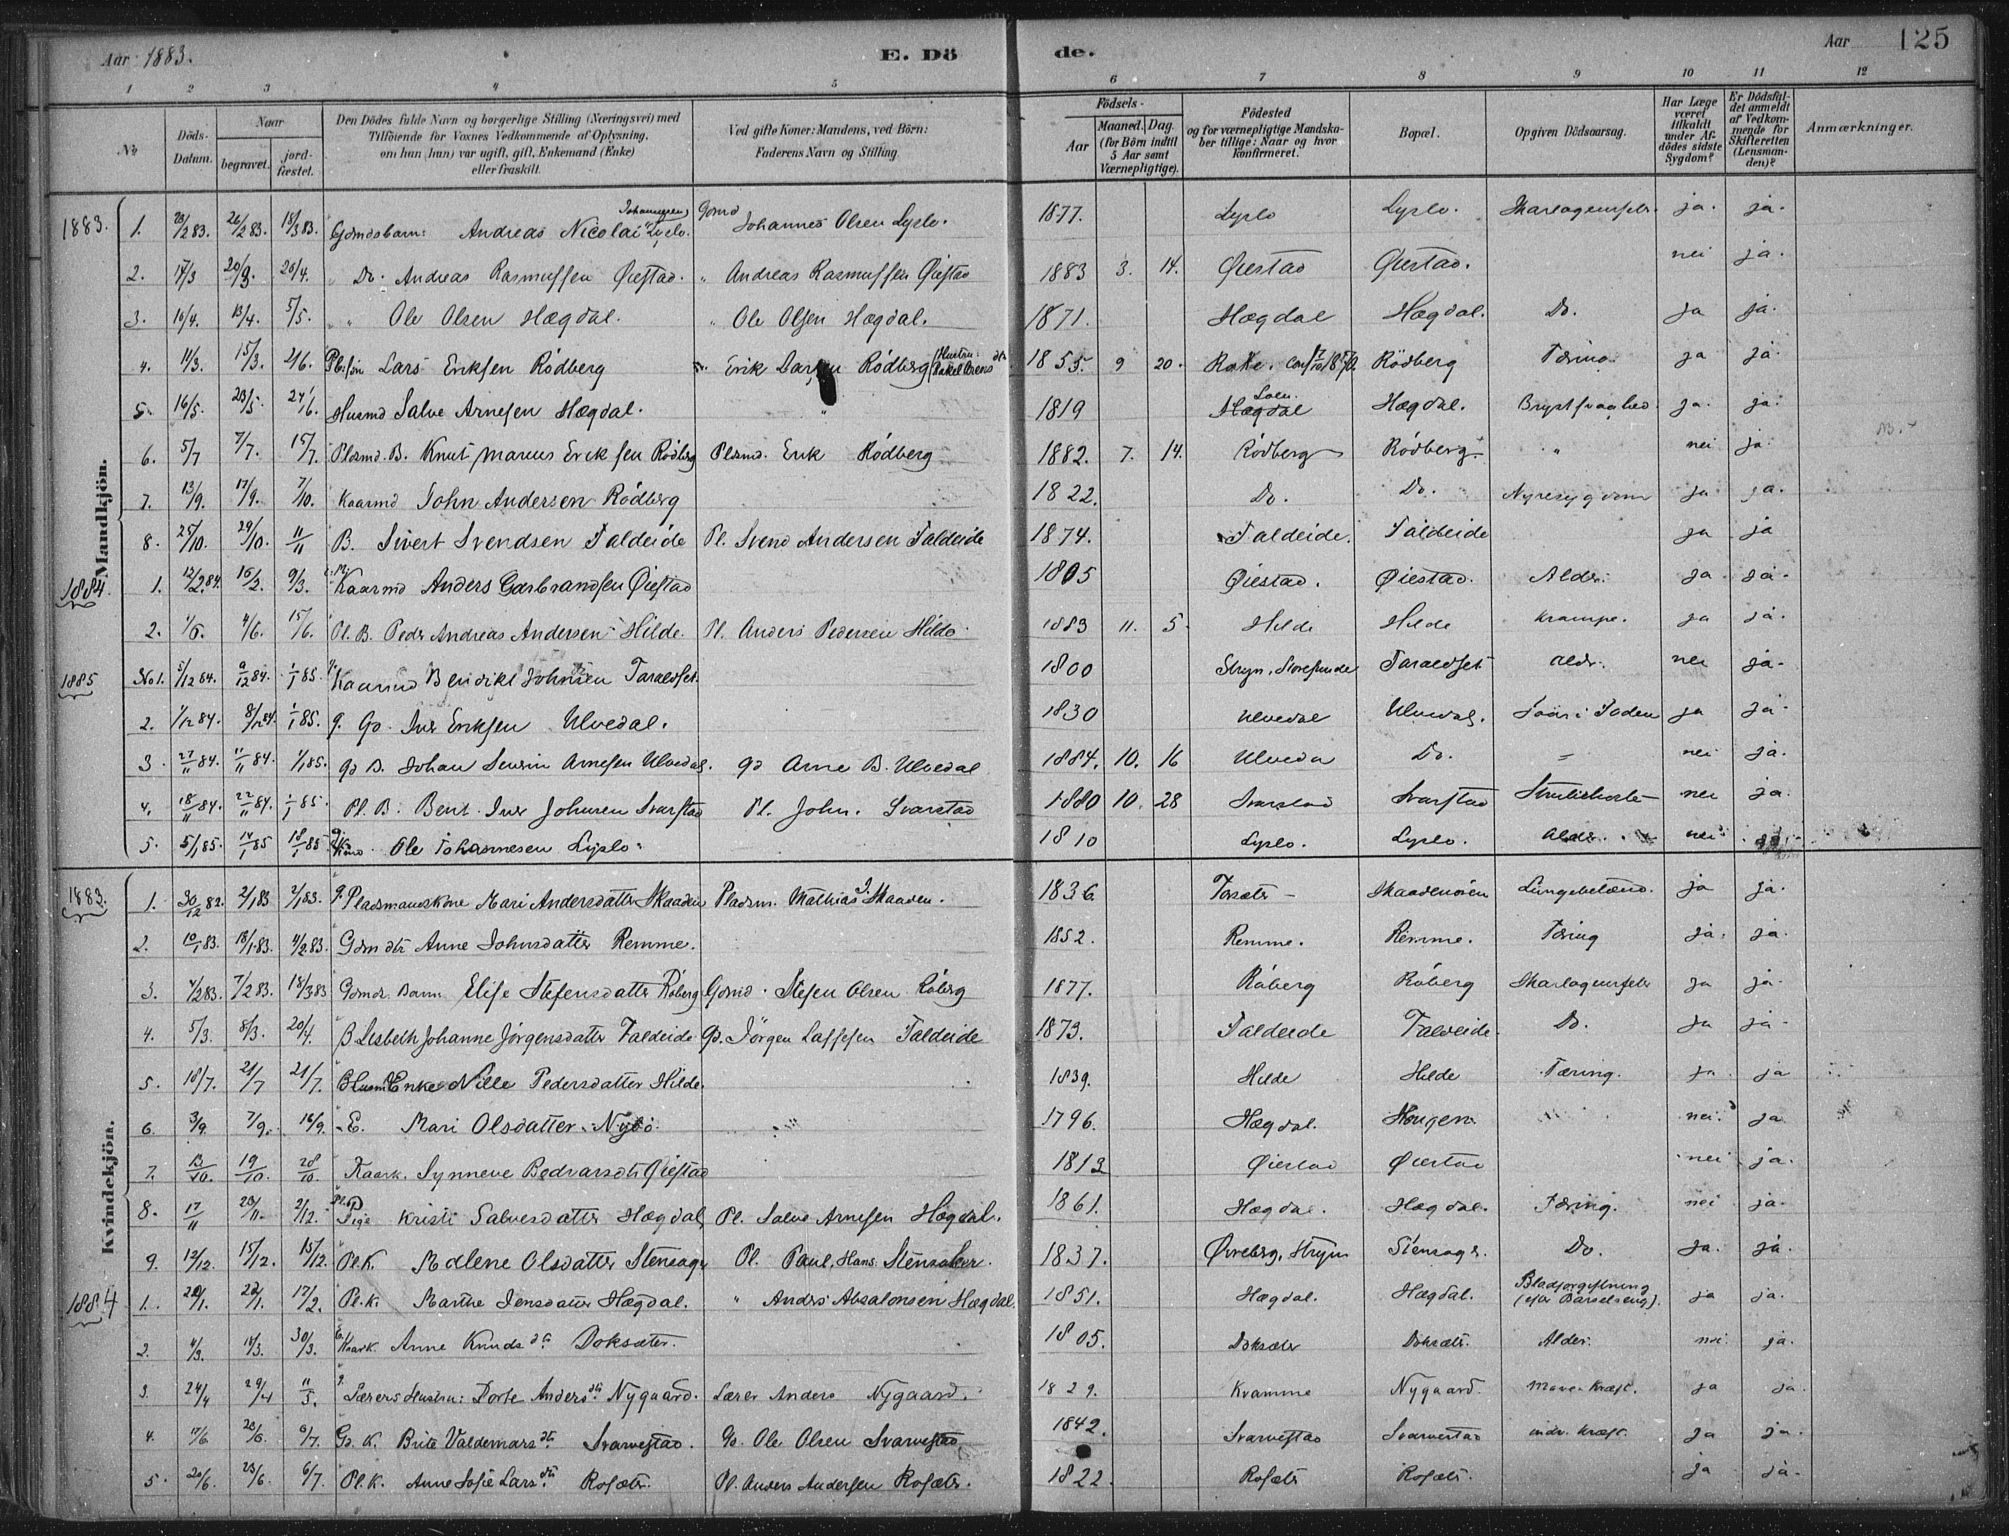 Aar 1883. E. Dö de. Aar 125
1 2 3 4 5 6 7 8 9 10 11 12
No Döds-Datum. Naar begravet. jord-fæstet. Den Dödes fulde Navn og borgerlige Stilling (Næringsvei) med Tilföiende for Voxnes Vedkommende af Oplysning, om han (hun) var ugift, gift, Enkemand (Enke) eller fraskilt. Ved gifte Koner: Mandens, ved Börn: Faderens Navn og Stilling. Födsels- Aar Maaned. Dag. (for Börn indtil 5 Aar samt Værnepligtige). Födested og for værnepligtige Mandskaber tillige: Naar og hvor konfirmeret. Bopæl. Opgiven Dödsaarsag. Har Læge været tilkaldt under Afdödes sidste Sygdom? Er Dödsfaldet anmeldt af Vedkommende for Skifteretten (Lensmanden)? Anmærkninger.
Mandkjön.
1883. 1. 23/2 83. 26/2 83. 18/3 83. Gdmdsbarn: Andreas Nicolai Johannesen Lyslo. Gdmd Johannes Olsen Lyslo. 1877. Lyslo Lyslo. Skarlagensfeber ja. ja.
2. 17/3 20/3. 20/4. " Do. Andreas Rasmussen Øiestad. " Andreas Rasmussen Øiestad 1883 3. 14. Øiestad Øiestad. nei ja.
3. 10/4. 13/4. 5/5. " " Ole Olsen Hægdal. " Ole Olsen Hægdal. 1871. Hægdal Hægdal. Do. ja ja.
4. 11/3. 15/3. 2/6. Lars Eriksen Rödberg Erik Larsen Rödberg 1855. 9 20. Rake. Rödberg Tæring ja ja.
5. 16/5. 23/5. 24/6. Husmd Salve Arnesen Hægdal. " 1819 Loen Hægdal Hægdal. Brystsvaghed ja. ja.
6. 5/7 7/7. 15/7. Pladsmd. B. Knut Marius Eriksen Rödberg Pladsmd. Erik Rödberg 1882. 7. 14. Rödberg Rödberg " nei ja.
7. 13/9. 17/9. 7/10. Kaarmd John Andersen Rödberg 1822. Do. Do. Nyresygdom ja ja.
8. 25/10. 29/10. 11/11 B. Sivert Svendsen Faldeide Pl. Svend Andersen Faldeide 1874. Faldeide. Faldeide ja ja
1884. 1. 12/2 84. 16/2. 9/3. Kaarmd Anders Garbrandsen Øiestad 1805 Øiestad. Øiestad. Alder. ja ja.
2. 1/6. 4/6. 15/6. Pl. B. Peder Andreas Andersen Hilde. Pl. Anders Pedersen Hilde 1883 11. 5. Hilde Hilde Krampe. ja ja.
1885 No 1. 5/12 84. 9/12 84. 1/1 85. Kaarmd Bendikt Johnsen Taraldset. 1800 Stryn, Taraldset Alder. nei ja.
2. 1/12 84. 8/12 84. 1/1 85. g. Gd. Iver Eriksen Ulvedal. 1830 Ulvedal Ulvedal. Saar i Foden ja ja.
3. 27/11 84. 11/11 84. 1/1 85. Gd B. Johan Arnesen Ulvedal. Gd Arne B. Ulvedal 1884. 10. 16 Ulvedal Do. " nei ja.
4. 18/11 84. 22/11 84. 1/1 85. Pl. B. Bent Iver Johnsen Svarstad Pl. John. Svarstad 1880 10. 28 Svarstad Svarstad Strubehoste nei ja.
5. 5/1 85. 14/1 85 18/1 85. Ole Johannesen Lyslo. 1810 Lyslo. Lyslo. Alder. nei
Kvindekjön.
1883. 1. 30/12 82. 2/1 83 2/1 83. g. Pladsmandskone Mari Andersdatter Skaaden Pladsm. Mathias J. Skaaden. 1836 Skaadenöien Lungebetænd. ja ja.
2. 10/1 83. 18/1 83. 4/2 83. Gdmdtr Anne Johnsdatter Remme. 1852. Remme. Remme. Tæring ja. ja.
3. 4/2 83. 7/2 83. 18/3 83 Gdmds Barn Elise Stefensdatter Röberg Gdmd. Stefen Olsen Röberg 1877. Röberg Röberg Skarlagensfeber ja ja.
4. 5/3. 8/3. 20/4. B Lisbeth Johanne Jörgensdatter Faldeide Gd. Jörgen Lassesen Faldeide 1873. Faldeide Faldeide Do. ja ja.
5. 18/7. 21/7 21/7. Enke Nille Pedersdatter Hilde. 1839. Hilde Hilde Tæring. ja ja
6. 3/9. 7/9. 16/9. E. Mari Olsdatter Nybö " 1796. Hægdal. Haugen nei. ja
7. 13/10. 19/10. 28/10. Kaark. Synneve Øiestad 1813 Øiestad Øiestad nei ja.
8. 17/11 23/11. 2/12. Pl. Pige Kristi Salvesdatter Hægdal Pl. Salve Arnesen Hægdal. 1861. Hægdal. Hægdal. Tæring. nei ja.
9. 12/12. 15/12. 15/12. Pl. K. Madlene Olsdatter Stensager Pl. Paul. Hans. Stensaker. 1837. Øvreberg, Stryn Stensager. Do. ja. ja.
1884 1. 20/1. 22/1. 17/2. Pl. K. Marthe Jensdatter Hægdal. " Anders Absalonsen Hægdal. 1851. Hægdal. Hægdal. Blodforgiftning (efter Barselseng). ja ja.
2. 4/3. 14/3. 30/3. E. Kaark. Anne Knudsdtr Doksæter. 1805. Doksæter Doksæter Alder. nei ja.
3. 24/4 29/4 11/5. g. Lærers Hustru: Dorte Andersdtr Nygaard. Lærer Anders Nygaard. 1829. Kvamme Nygaard. Mavekræft. ja ja.
4. 17/6. 20/6. 6/7. Gd. K. Brite Valdemarsdtr Svarvestad. Gd. Ole Olsen Svarvestad 1842. Svarvestad Svarvestad indv. Kræft. ja ja.
5. 20/6. 23/6. 6/7. Pl. K. Anne Sofie Larsdtr Rosæter. Pl. Anders Andersen Rosæter. 1822. Rosæter Rosæter. ja ja.